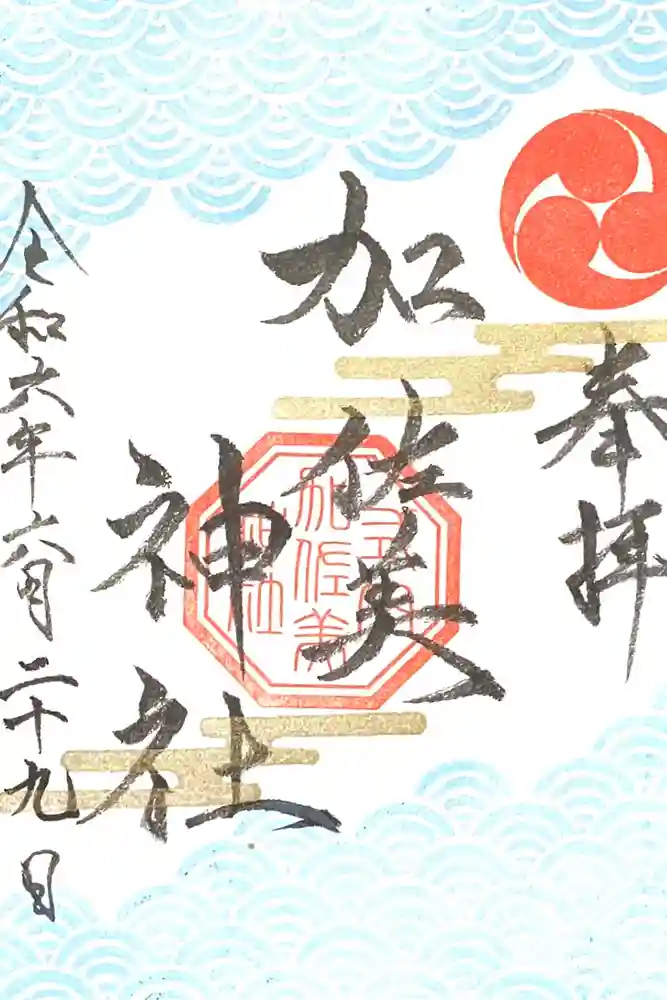 奉拝
加佐美
神社
令和六年六月二十九日
加佐美